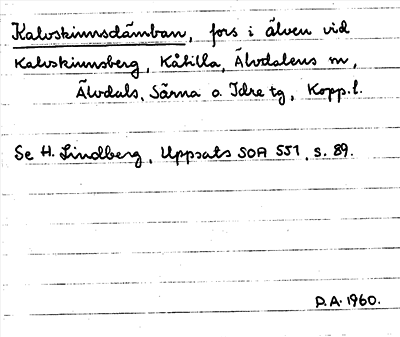 Kalvskinnsdämban, fors i älven vid
Kalvskinnsberg, Kåtilla, Älvdalens sn,
Älvdals, Särna o. Idre tg, Kopp. l.
Se H. Lindberg, Uppsats SOA 551, s. 89.
D.A. 1960.